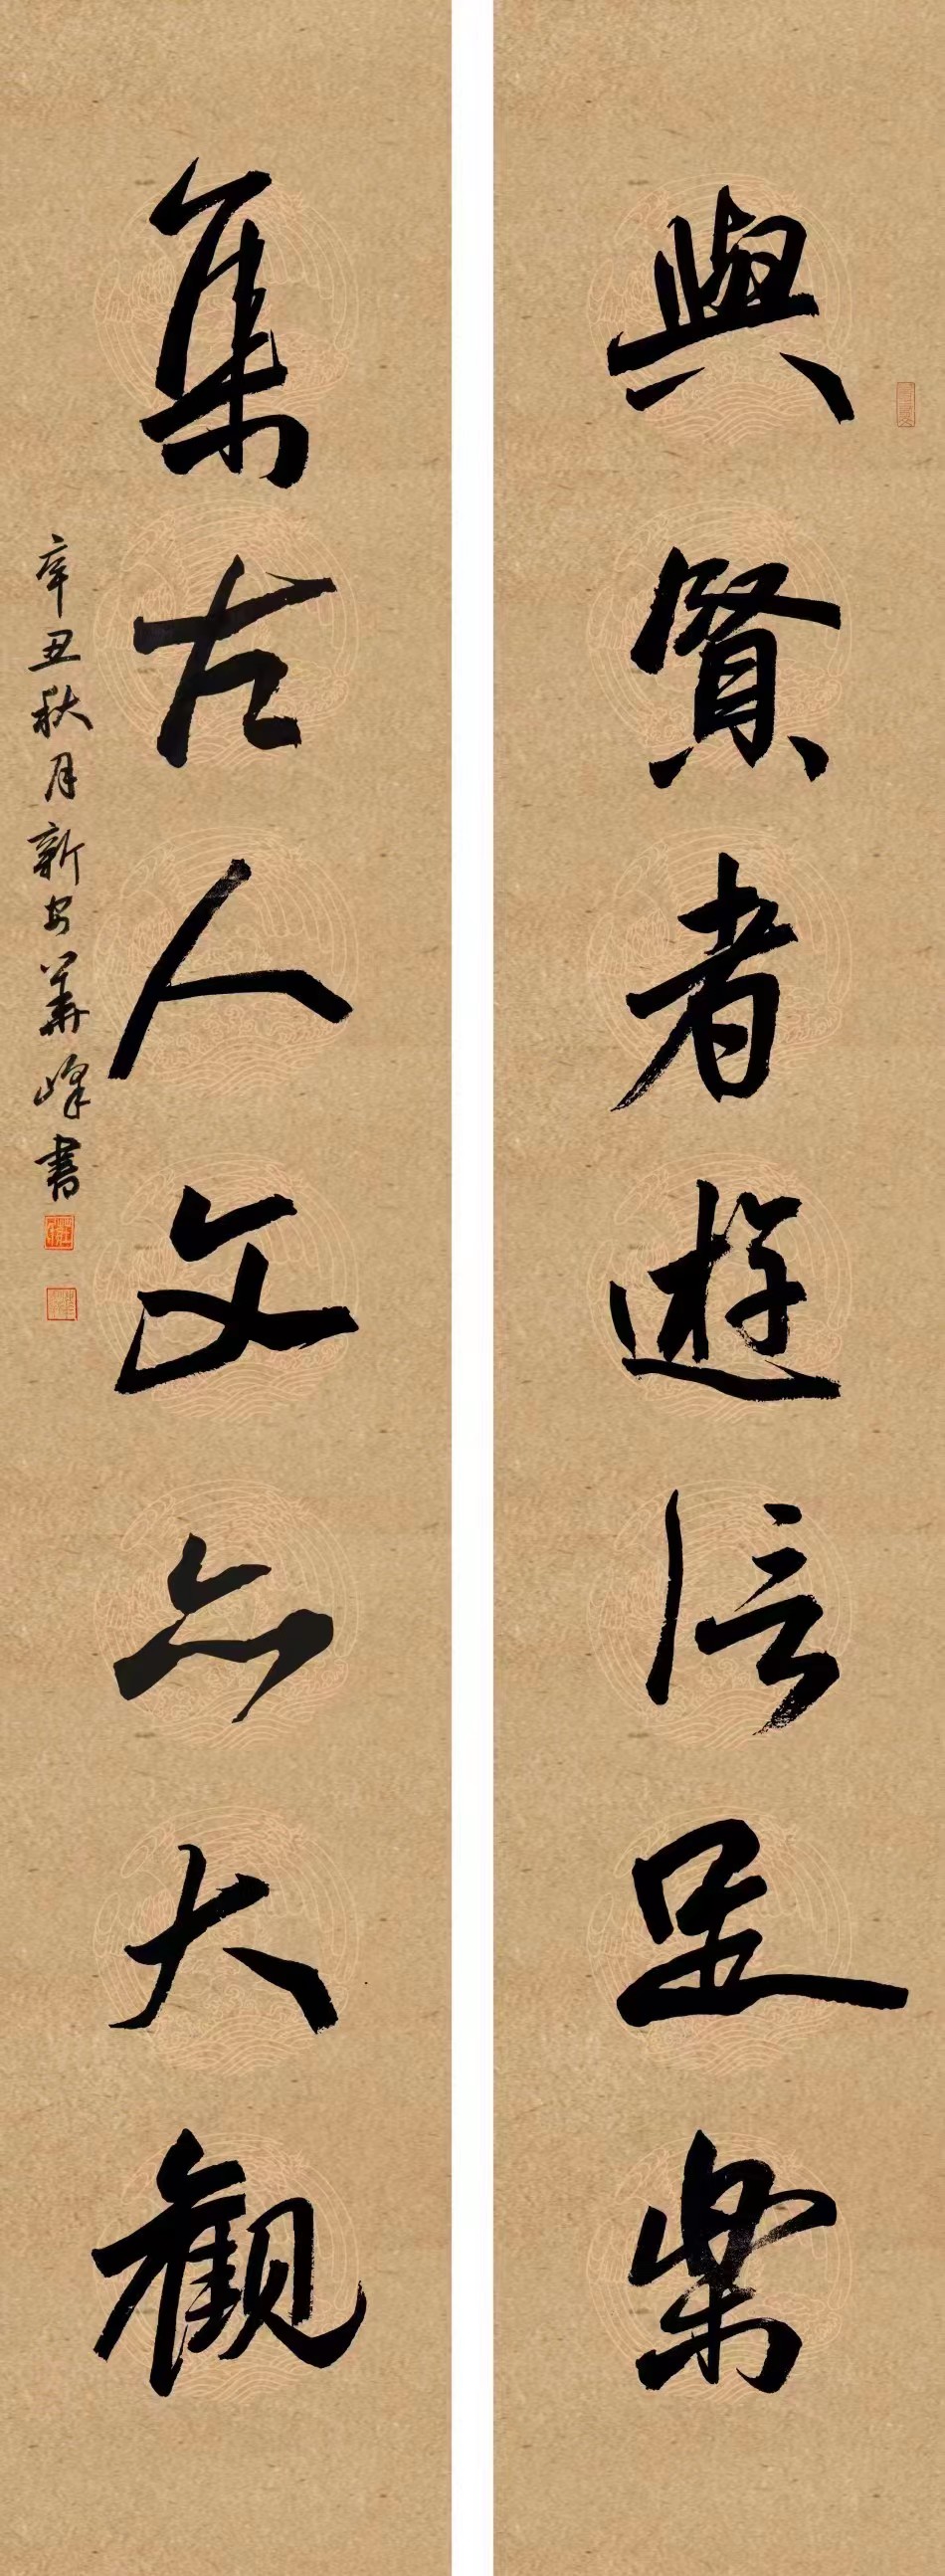 與賢者遊信足樂
集古人文亦大觀
辛丑秋月新安華峰書